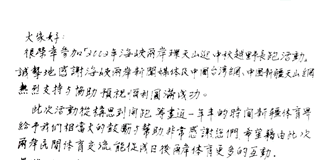 大家好:
很榮幸參加「2002年海峽兩岸環天山逛中秋越野長跑活動。
誠摯地感謝海峽兩岸新聞媒体及中國台灣網、中國新疆天山網
熱烈支持与協助預祝順利圓滿成功。
此次活動從構思到開跑 籌畫這一年半的時間新疆体育界
給予我們相當大的鼓勵与幫助非常感謝您們 希望藉由此次
兩岸民間体育交流 能促成日後兩岸体育更多的互動。